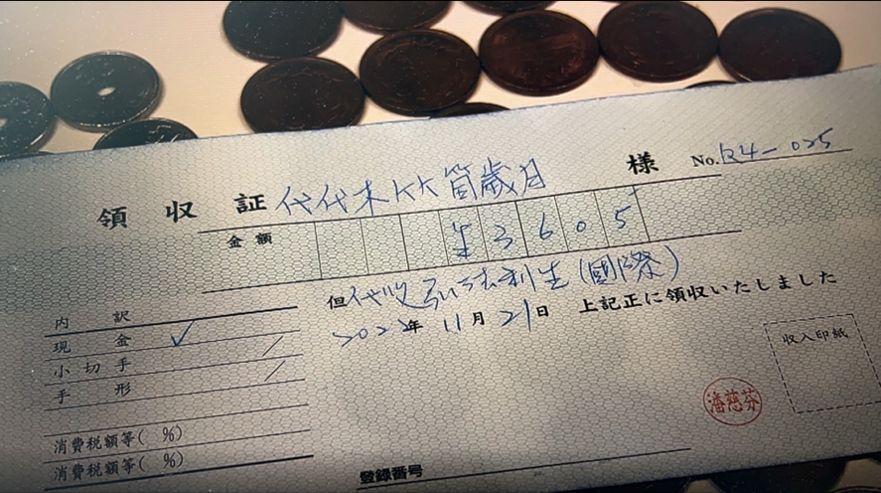 領収証 代代木KK箇歳月 様 No. R4-025
金額 ¥3605
但代収弘法利生(國際)
2022年11月21日 上記正に領収いたしました
内訳
現金 ✓
小切手 /
手形 /
消費税額等( %)
消費税額等( %)
収入印紙
潘慈芬
登録番号